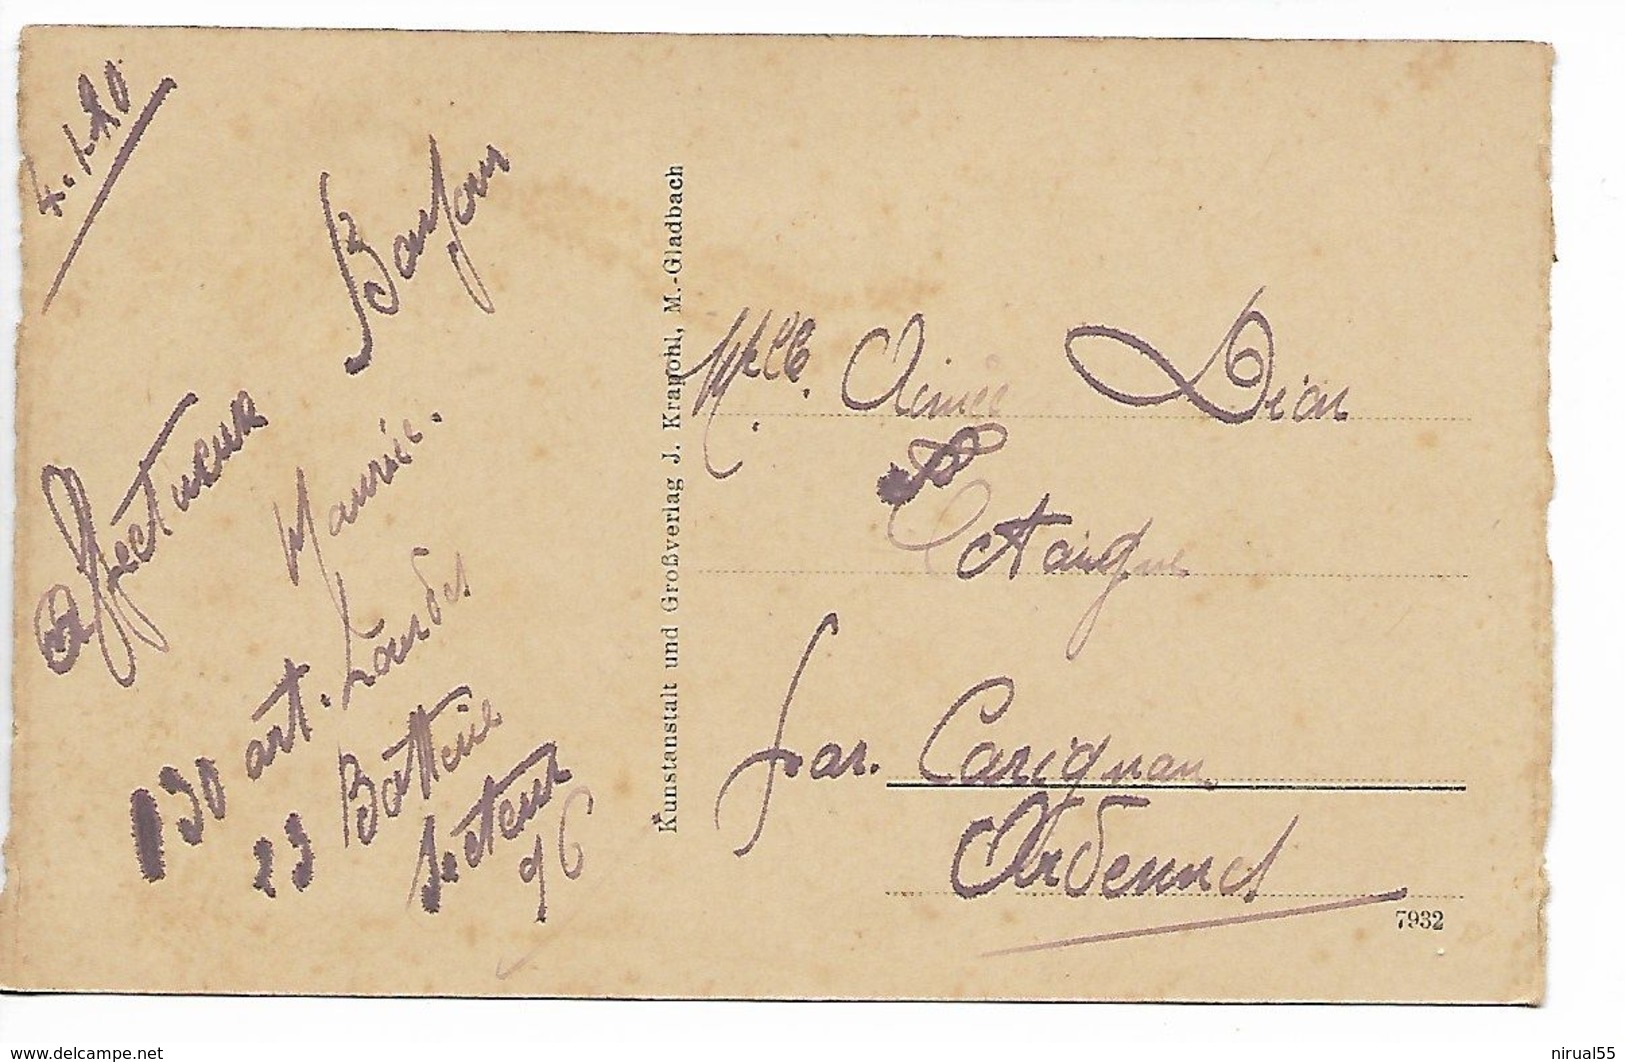 4.1.20
Affectueux Bonjour
Maurice.
130 art. Lourde
23 Batterie
Secteur
96
Kunstanstalt und Großverlag J. Krapohl, M.-Gladbach
Mlle. Aimée Dion
Etaigne
par. Carignan
Ardennes
7932
www.delcampe.net
nirual55